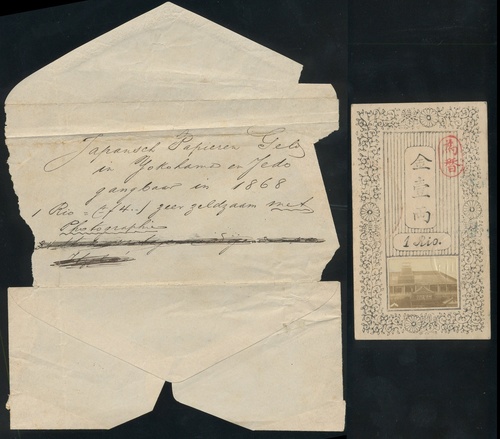 Japansch Papieren Geld
in Yokohama en Jedo
gangbaar in 1868
1 Rio = (ƒ 4..) zeer zeldzaam met
Photographie
金壹両
1 Rio.